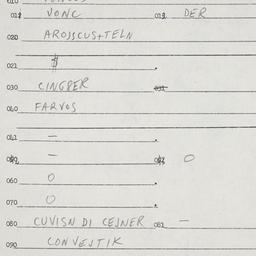 VONC 019 DER
020 AROJSCUSTELN
021 $ .
030 CINGPER 031
040 FARVOS
041 — .
— 042 O
060 O .
070 O .
080 CUVISN DI CEJNER 081 —
090 CONVESTIK